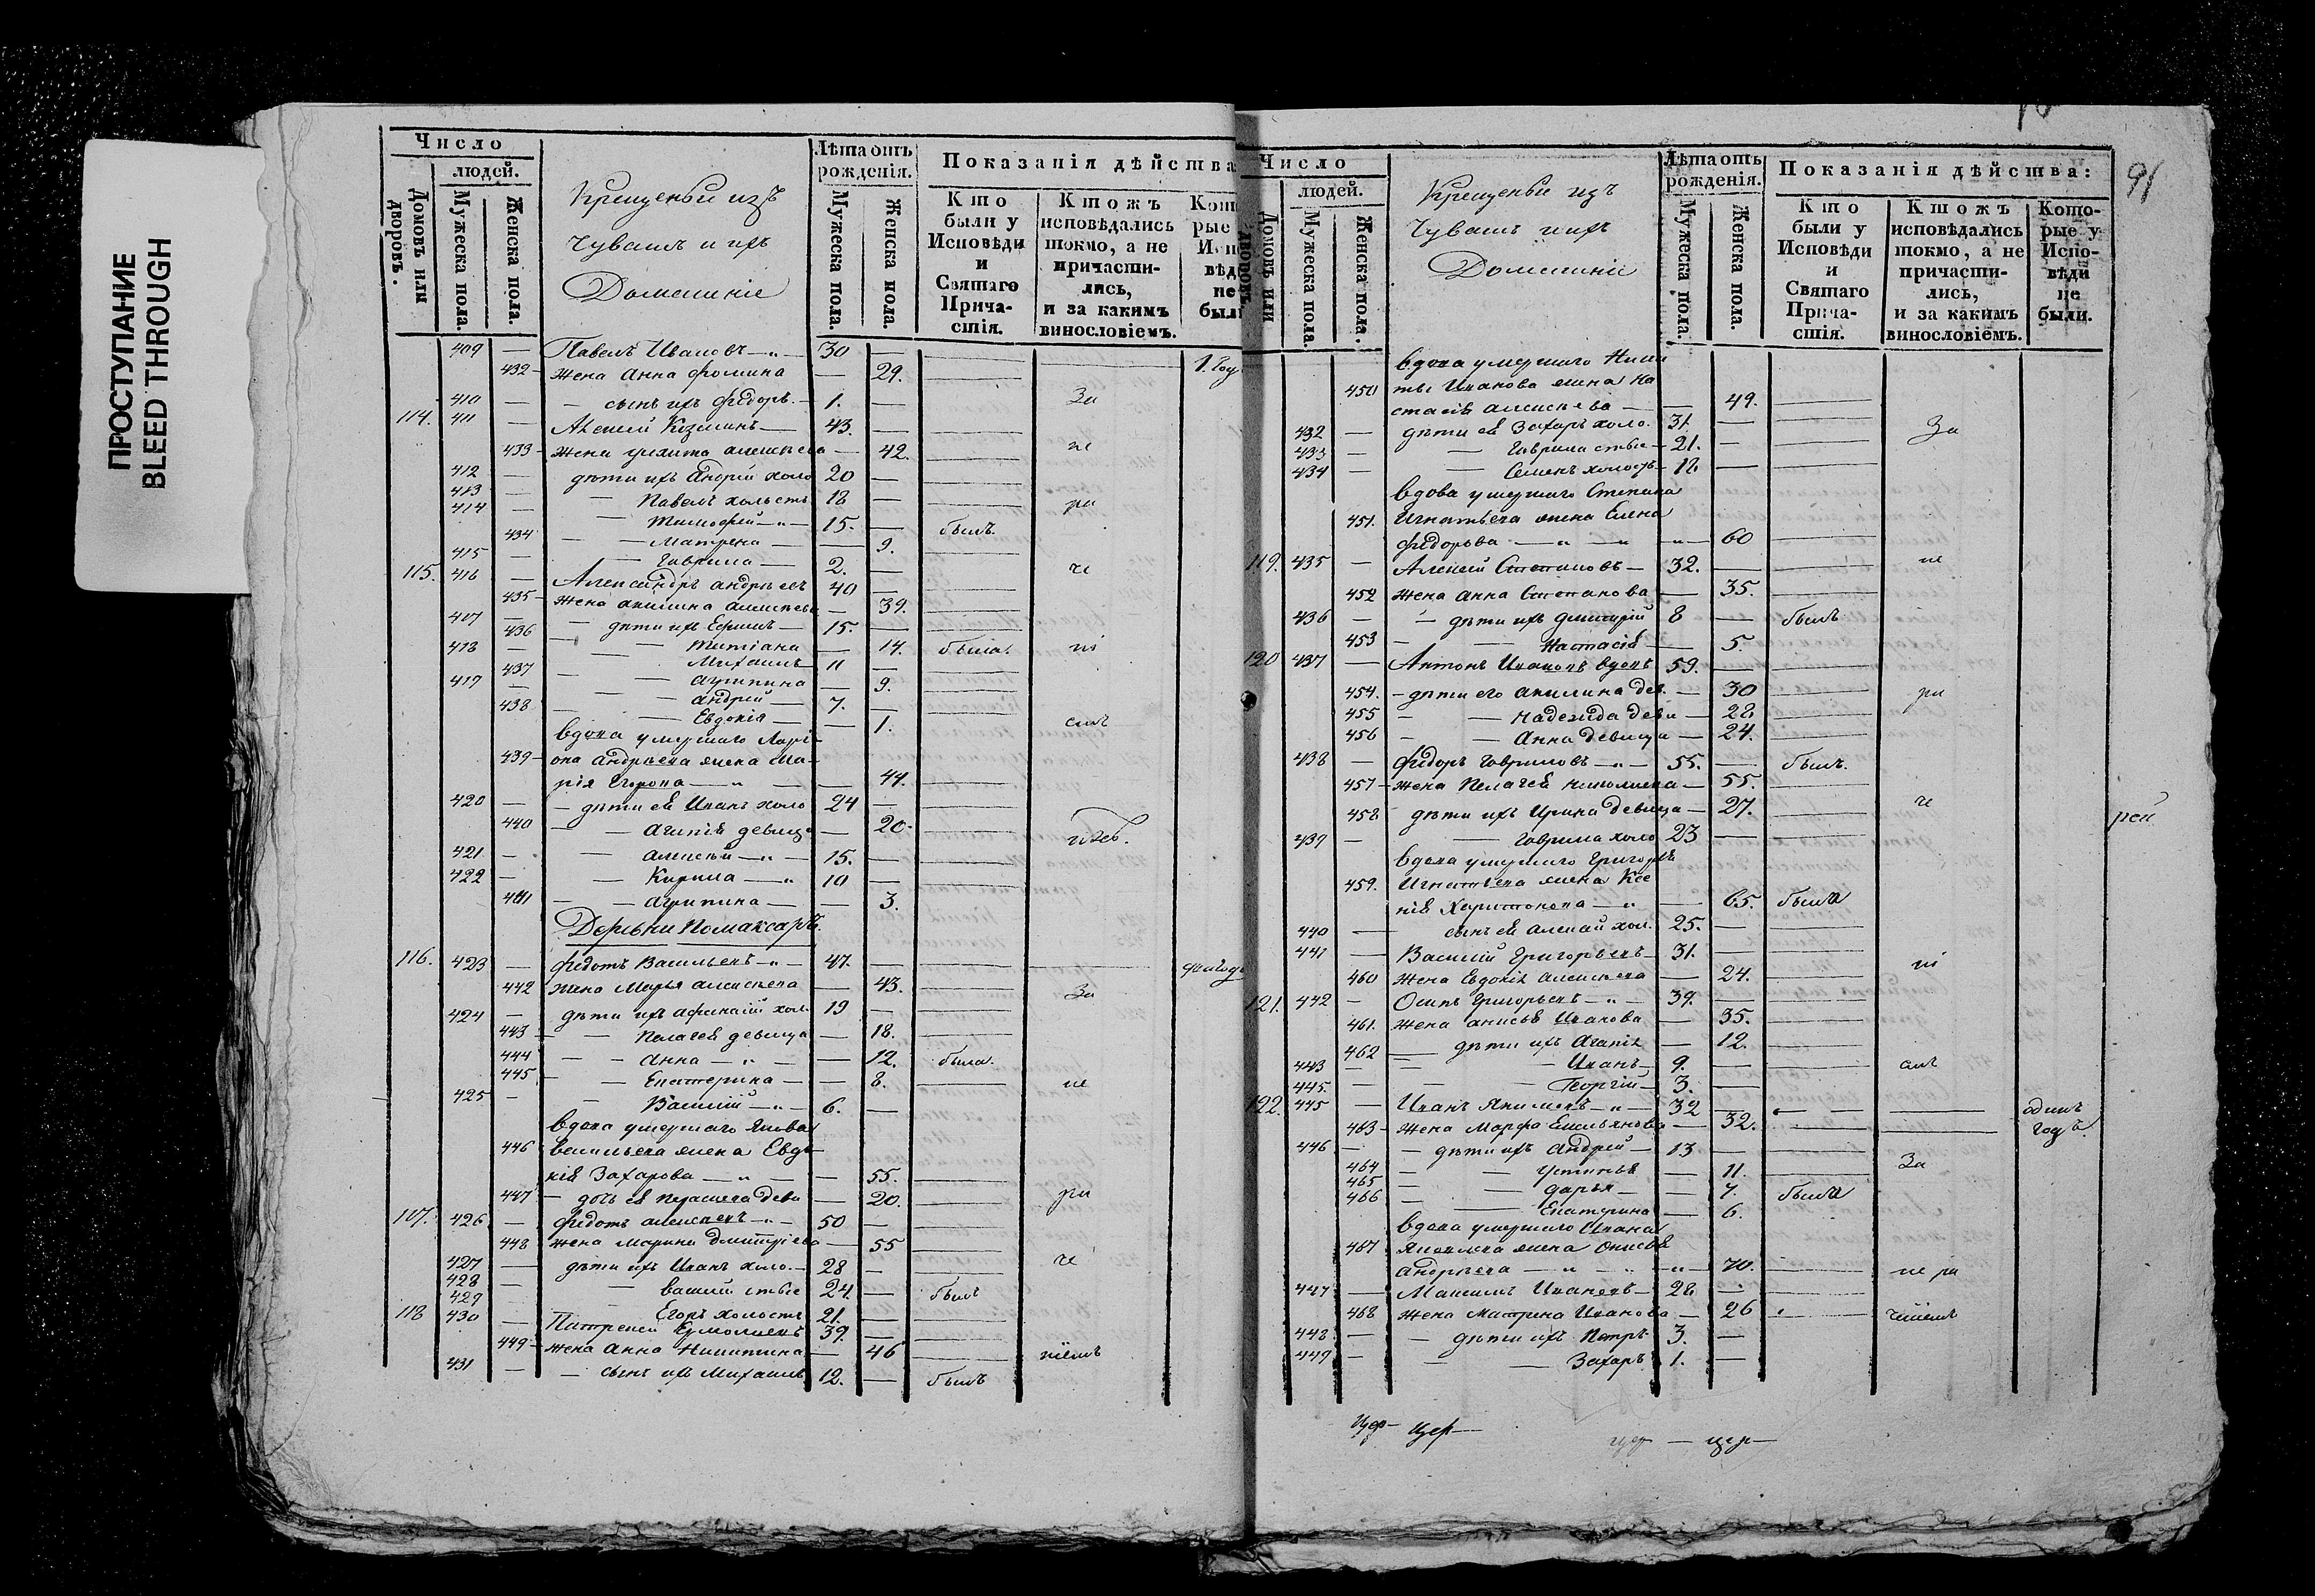 ПРОСТУПАНИЕ
BLEED THROUGH
Число
людей.
Домовъ или дворовъ.
Мужеска пола.
Женска пола.
Крещеныи изъ
Чувашъ и ихъ
Домашніе
Лѣта отъ рожденія.
Мужеска пола.
Женска пола.
Показанія дѣйства
Кто были у Исповѣди и Святаго Прича-стія.
Ктожъ исповѣдались токмо, а не причасти-лись, и за какимъ винословіемъ.
409 — Павелъ Ивановъ — 30 —
432 — жена Анна Фомина — 29.
410 — сынъ ихъ Федоръ — 1. — За
114. 411 — Алексей Козминъ — 43. —
433 — жена Алексеева — 42. не
412 — дѣти ихъ Андрей холо 20 —
413 — Павелъ холостъ 18 —
414 — Тимофей — 15. — былъ
434 — Матрена — 9.
415 — Гаврила — 2. —
115. 416 — Александръ Андреевъ 40 —
435 — жена Акилина Алексеева — 39.
417 — дѣти ихъ Ефимъ — 15. —
436 — Татіана — 14. была
418 — Михаилъ — 11 —
437 — Агрипина — 9.
419 — Андрей — 7. —
438 — Евдокія — 1.
вдова умершаго Лари-
439 — она Андреева жена Ма-
рія Егорова — 44.
420 — дѣти ея Иванъ холо 24 —
440 — Агапія девица — 20.
421 — Алексей — 15. —
422 — Кирила — 10 —
441 — Агрипина — 3.
Деревни Помаксаръ.
116. 423 — Федотъ Васильевъ — 47. —
442 жена Марья Алексеева — 43. За
424 — дѣти ихъ Афанасій хол. 19 —
443 — Пелагея девица — 18.
444 — Анна — 12. была.
445 — Екатерина — 8. не
425 — Василій — 6. —
вдова умершаго Якова
446 Васильева жена Евдо-
кія Захарова — 55.
447 — дочь ея девица — 20.
117. 426 — Федотъ Алексеевъ — 50 —
448 жена Марина Дмитріева — 55
427 — дѣти ихъ Иванъ холо. — 28 —
428 — Василій 24. — былъ
429 — Егоръ холостъ 21. —
118 430 — Патрекей Ермолаевъ 39. —
449 — жена Анна Никитина — 46
431 — сынъ ихъ Михаилъ 12. — былъ
91
Число
людей.
Домовъ или дворовъ.
Мужеска пола.
Женска пола.
Крещеныи изъ
Чувашъ и ихъ
Домашніе
Лѣта отъ рожденія.
Мужеска пола.
Женска пола.
Показанія дѣйства:
Кто были у Исповѣди и Святаго Прича-стія.
Ктожъ исповѣдались токмо, а не причасти-лись, и за какимъ винословіемъ.
Кото-рые у Испо-вѣди не были.
вдова умершаго Ники
450 ты Иванова жена На
стасія Алексеева — 49.
432 — дѣти ея Захаръ холо. 31. — За
433 — Гаврила — 21. —
434 — Семенъ холостъ — 18 —
вдова умершаго Степана
451. Игнатьева жена Елена
Федорова — 60
119. 435 — Алексей Степановъ — 32. — не
452 жена Анна Степанова — 35.
436 — дѣти ихъ Дмитрій 8 — былъ
453 — Настасія — 5.
120 437 — Антонъ Ивановъ вдовъ 59. —
454. — дѣти его Акилина дев. — 30
455 — Надежида деви — 28
456 — Анна девица — 24.
438 — Федоръ Гавриловъ — 55. — былъ.
457 — жена Пелагея — 55.
458 дѣти ихъ Ирина девица — 27.
439 — Гаврила холо 23 —
вдова умершаго Григорья
459. Игнатьева жена Ксе
нія Харитонова — 65. была
440 — сынъ ея Алексей хол. 25. —
441 — Василій Григорьевъ — 31. —
460 жена Евдокія Алексеева — 24.
121. 442 — Осипъ Григорьевъ — 39. —
461. жена Анисья Иванова — 35.
462 — дѣти ихъ Агапія — 12.
443 — Иванъ — 9. —
445. — Георгій — 3. —
122. 445 — Иванъ Якимовъ — 32 — одинъ
463 — жена Марфа Емельянова — 32. годъ.
446 — дѣти ихъ Андрей — 13 —
464 — Устинья — 11. За
465 — Дарья — 7. была
466 — Екатерина — 6.
вдова умершаго Ивана
467 жена
Андреева — 70.
447 — Максимъ Ивановъ — 28 —
468 жена Матрена Иванова — 26
448. — дѣти ихъ Петръ 3. —
449 — Захаръ 1. —